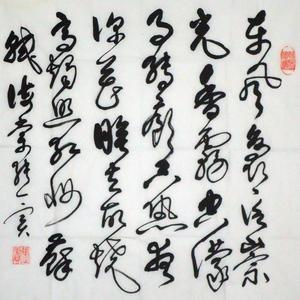 東風裊裊泛崇
光香霧空濛
月轉廊只恐夜
深花睡去故燒
高燭照紅妝 蘇
軾海棠